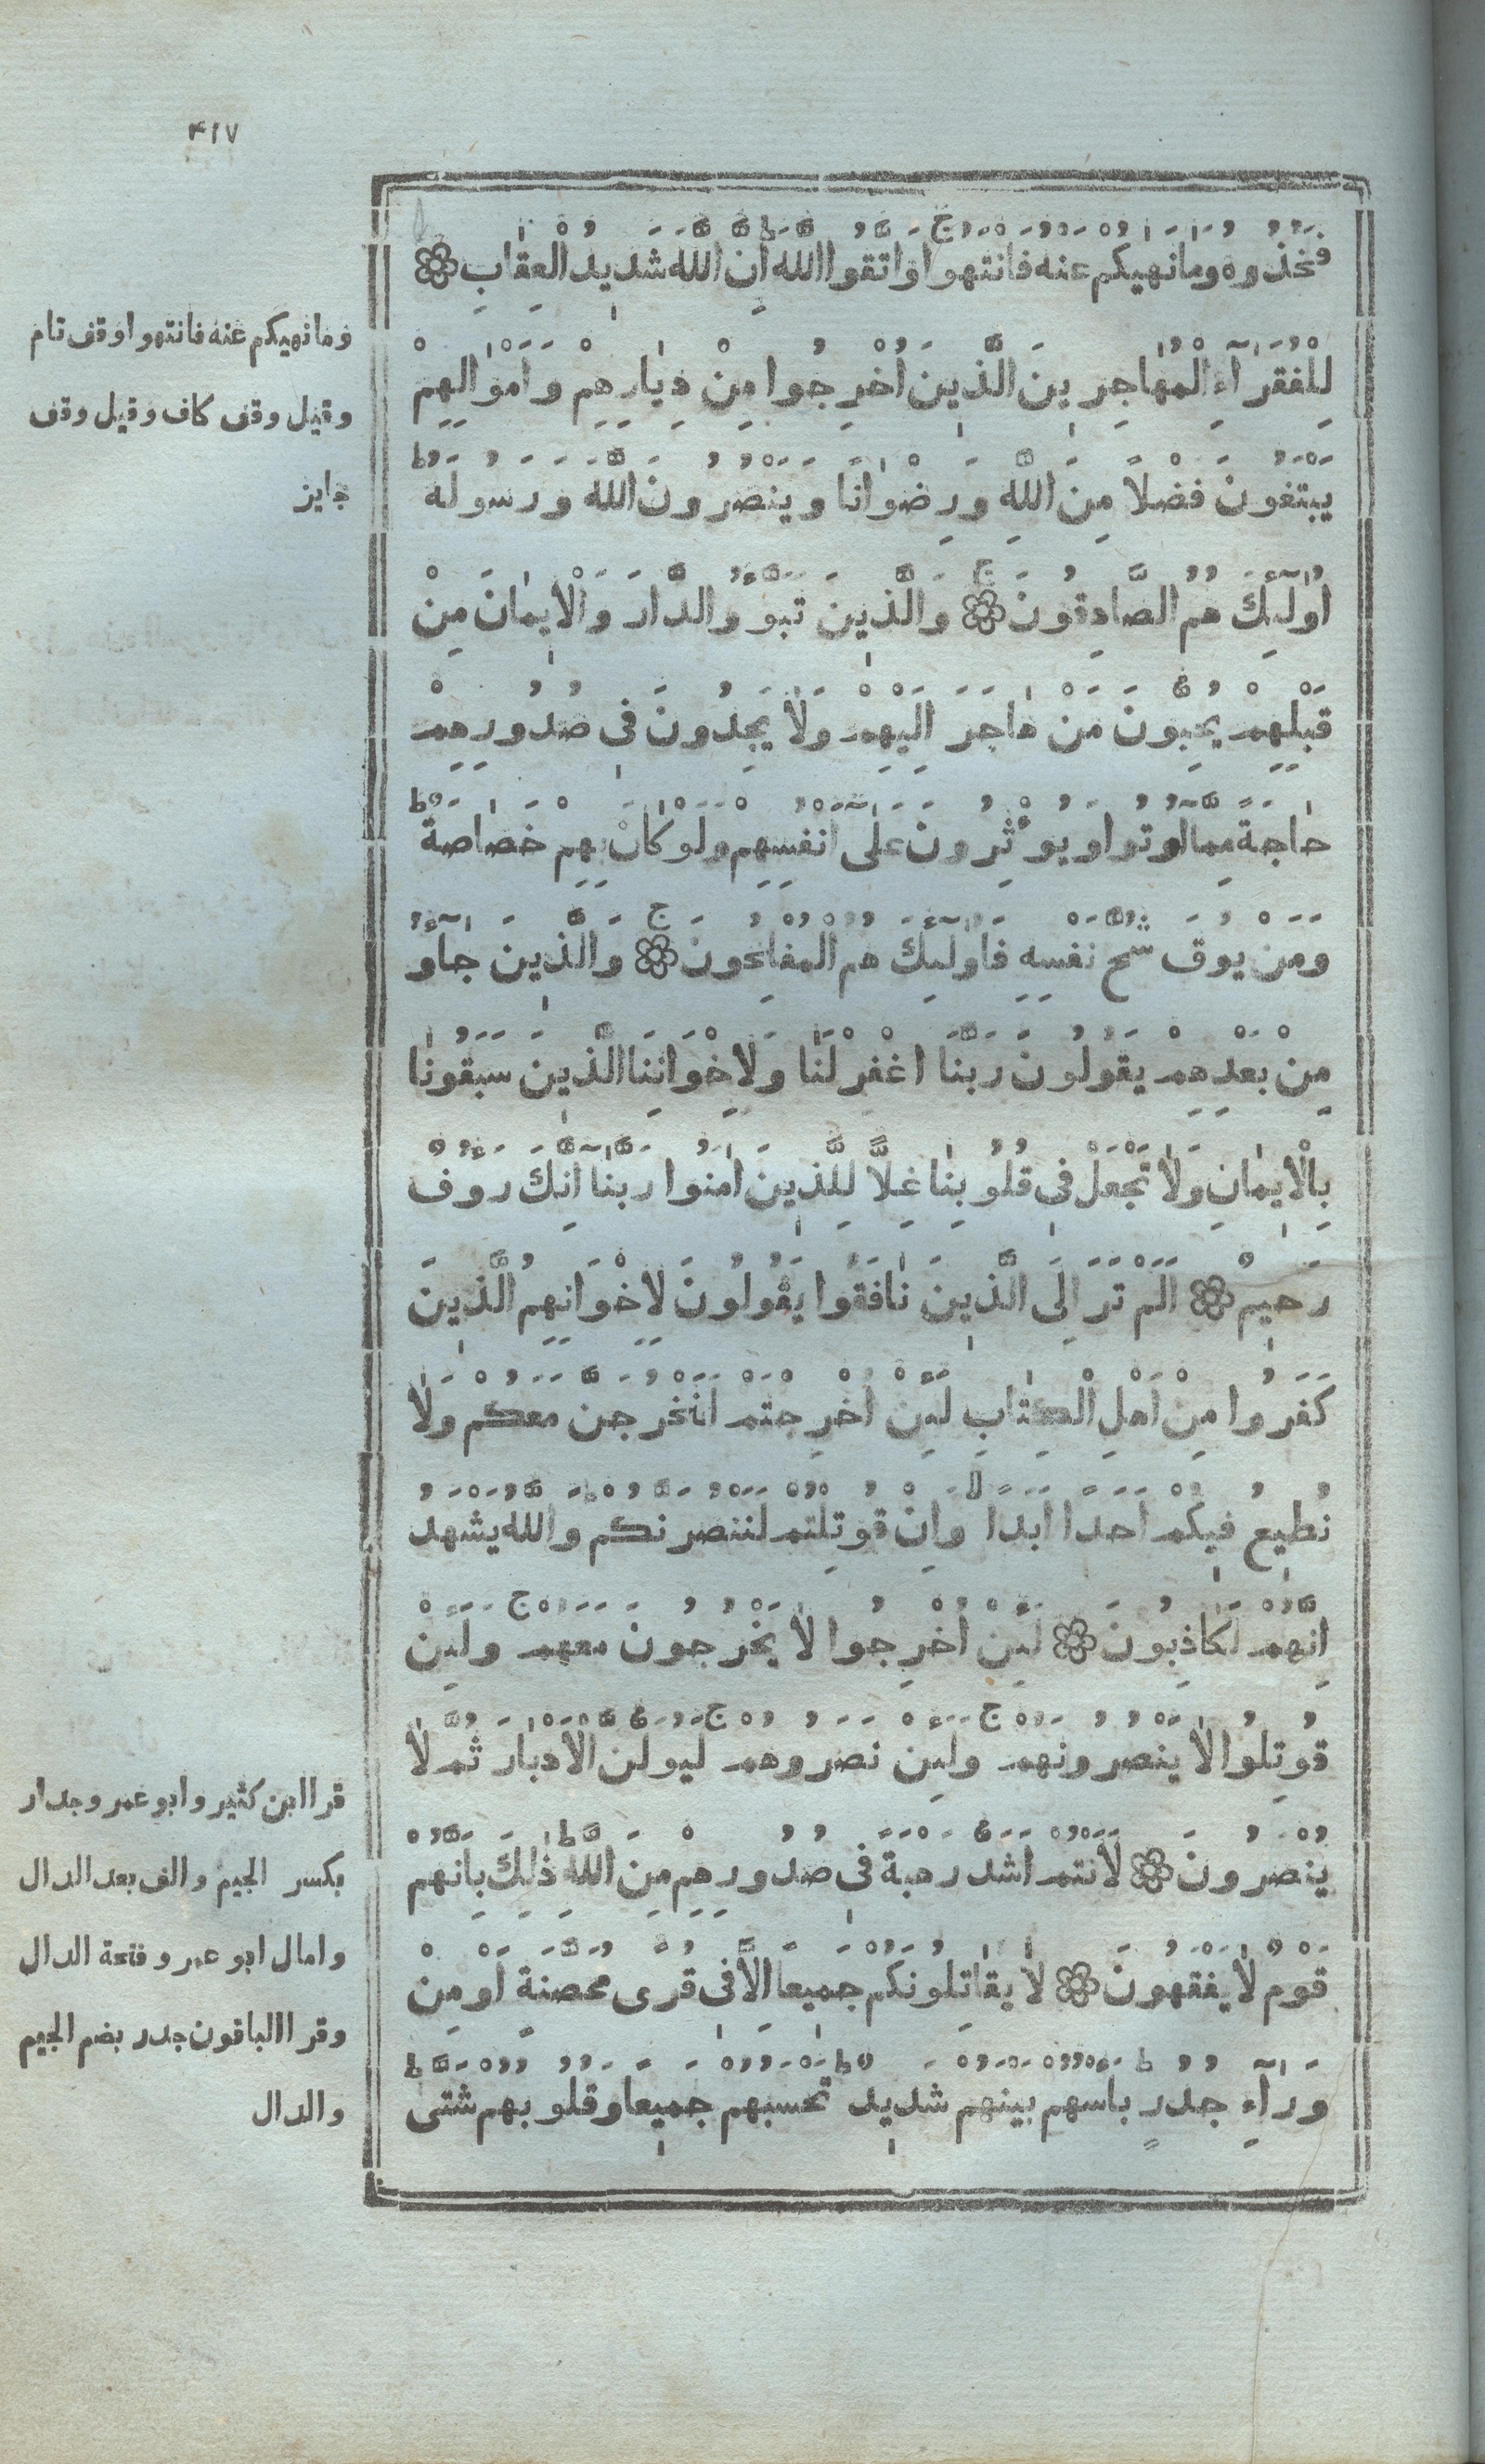 ۴۱۷
فَخُذُوهُ وَمَا نَهٰيكُمْ عَنْهُ فَانْتَهُوا ج وَاتَّقُوا اللّٰهَ ط اِنَّ اللّٰهَ شَدٖيدُ الْعِقَابِ ۞
لِلْفُقَرَآءِ الْمُهَاجِرٖينَ الَّذٖينَ اُخْرِجُوا مِنْ دِيَارِهِمْ وَاَمْوَالِهِمْ
يَبْتَغُونَ فَضْلًا مِنَ اللّٰهِ وَرِضْوَانًا وَيَنْصُرُونَ اللّٰهَ وَرَسُولَهُ ط
اُولٰٓئِكَ هُمُ الصَّادِقُونَ ج ۞ وَالَّذٖينَ تَبَوَّؤُ الدَّارَ وَالْاٖيمَانَ مِنْ
قَبْلِهِمْ يُحِبُّونَ مَنْ هَاجَرَ اِلَيْهِمْ وَلَا يَجِدُونَ فٖى صُدُورِهِمْ
حَاجَةً مِمَّآ اُوتُوا وَيُؤْثِرُونَ عَلٰٓى اَنْفُسِهِمْ وَلَوْ كَانَ بِهِمْ خَصَاصَةٌ ط
وَمَنْ يُوقَ شُحَّ نَفْسِهِ فَاُولٰٓئِكَ هُمُ الْمُفْلِحُونَ ج ۞ وَالَّذٖينَ جَآؤُ
مِنْ بَعْدِهِمْ يَقُولُونَ رَبَّنَا اغْفِرْ لَنَا وَلِاِخْوَانِنَا الَّذٖينَ سَبَقُونَا
بِالْاٖيمَانِ وَلَا تَجْعَلْ فٖى قُلُوبِنَا غِلًّا لِلَّذٖينَ اٰمَنُوا رَبَّنَآ اِنَّكَ رَؤُفٌ
رَحٖيمٌ ۞ اَلَمْ تَرَ اِلَى الَّذٖينَ نَافَقُوا يَقُولُونَ لِاِخْوَانِهِمُ الَّذٖينَ
كَفَرُوا مِنْ اَهْلِ الْكِتَابِ لَئِنْ اُخْرِجْتُمْ لَنَخْرُجَنَّ مَعَكُمْ وَلَا
نُطٖيعُ فٖيكُمْ اَحَدًا اَبَدًا لا وَاِنْ قُوتِلْتُمْ لَنَنْصُرَنَّكُمْ ط وَاللّٰهُ يَشْهَدُ
اِنَّهُمْ لَكَاذِبُونَ ۞ لَئِنْ اُخْرِجُوا لَا يَخْرُجُونَ مَعَهُمْ ج وَلَئِنْ
قُوتِلُوا لَا يَنْصُرُونَهُمْ ج وَلَئِنْ نَصَرُوهُمْ ج لَيُوَلُّنَّ الْاَدْبَارَ ثُمَّ لَا
يُنْصَرُونَ ۞ لَاَنْتُمْ اَشَدُّ رَهْبَةً فٖى صُدُورِهِمْ مِنَ اللّٰهِ ط ذٰلِكَ بِاَنَّهُمْ
قَوْمٌ لَا يَفْقَهُونَ ۞ لَا يُقَاتِلُونَكُمْ جَمٖيعًا اِلَّا فٖى قُرًى مُحَصَّنَةٍ اَوْ مِنْ
وَرَآءِ جُدُرٍ ط بَاْسُهُمْ بَيْنَهُمْ شَدٖيدٌ ط تَحْسَبُهُمْ جَمٖيعًا وَقُلُوبُهُمْ شَتّٰى ط
وما نهيكم عنه فانتهوا وقف تام
وقيل وقف كاف وقيل وقف
جايز
قرا ابن كثير وابو عمرو جدار
بكسر الجيم والف بعد الدال
وامال ابو عمرو فتحة الدال
وقرا الباقون جدر بضم الجيم
والدال